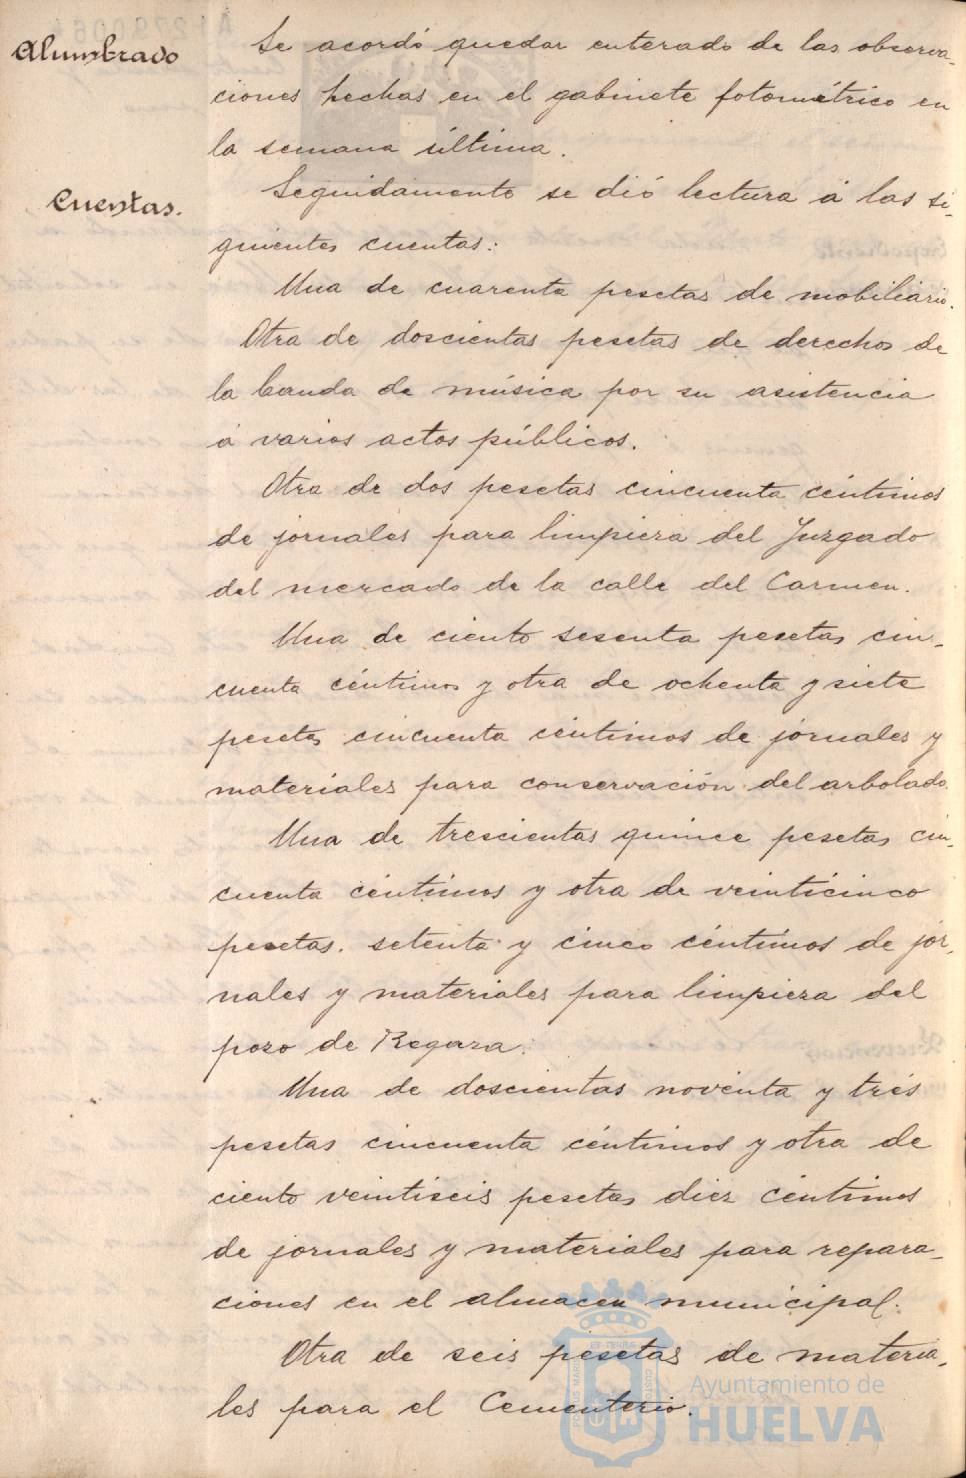 Alumbrado
Se acordó quedar enterado de las observa-
ciones hechas en el gabinete fotométrico en
la semana última.
Cuentas.
Seguidamente se dió lectura á las si-
guientes cuentas:
Una de cuarenta pesetas de mobiliario.
Otra de doscientas pesetas de derechos de
la banda de música por su asistencia
á varios actos públicos.
Otra de dos pesetas cincuenta céntimos
de jornales para limpieza del Juzgado
del mercado de la calle del Carmen.
Una de ciento sesenta pesetas cin-
cuenta céntimos y otra de ochenta y siete
pesetas cincuenta céntimos de jornales y
materiales para conservación del arbolado.
Una de trescientas quince pesetas cin-
cuenta céntimos y otra de veinticinco
pesetas. setenta y cinco céntimos de jor-
nales y materiales para limpieza del
pozo de Regaza.
Una de doscientas noventa y trés
pesetas cincuenta céntimos y otra de
ciento veintiseis pesetas diez céntimos
de jornales y materiales para repara-
ciones en el almacen municipal.
Otra de seis pesetas de materia-
les para el Cementerio.
Ayuntamiento de
HUELVA